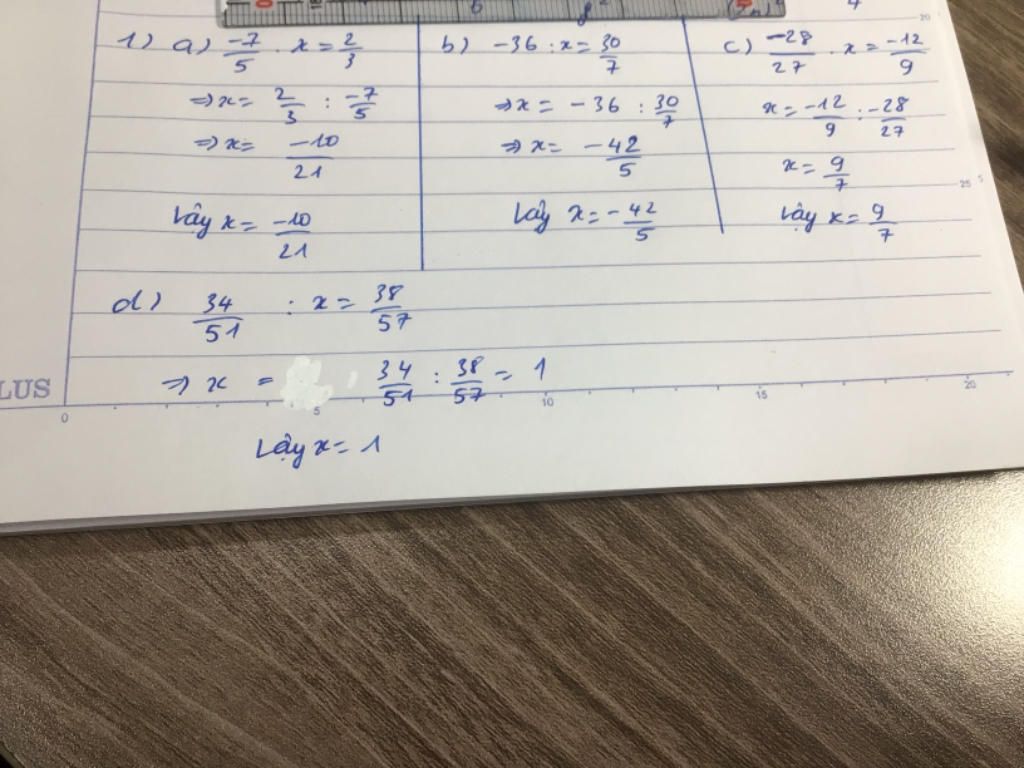 1) a) -7/5 . x = 2/3
⇒ x = 2/3 : -7/5
⇒ x = -10/21
Vậy x = -10/21
b) -36 : x = 30/7
⇒ x = -36 : 30/7
⇒ x = -42/5
Vậy x = -42/5
c) -28/27 . x = -12/9
x = -12/9 : -28/27
x = 9/7
Vậy x = 9/7
d) 34/51 : x = 38/57
⇒ x = 34/51 : 38/57 = 1
Vậy x = 1
LUS
0 5 10 15 20
20
25